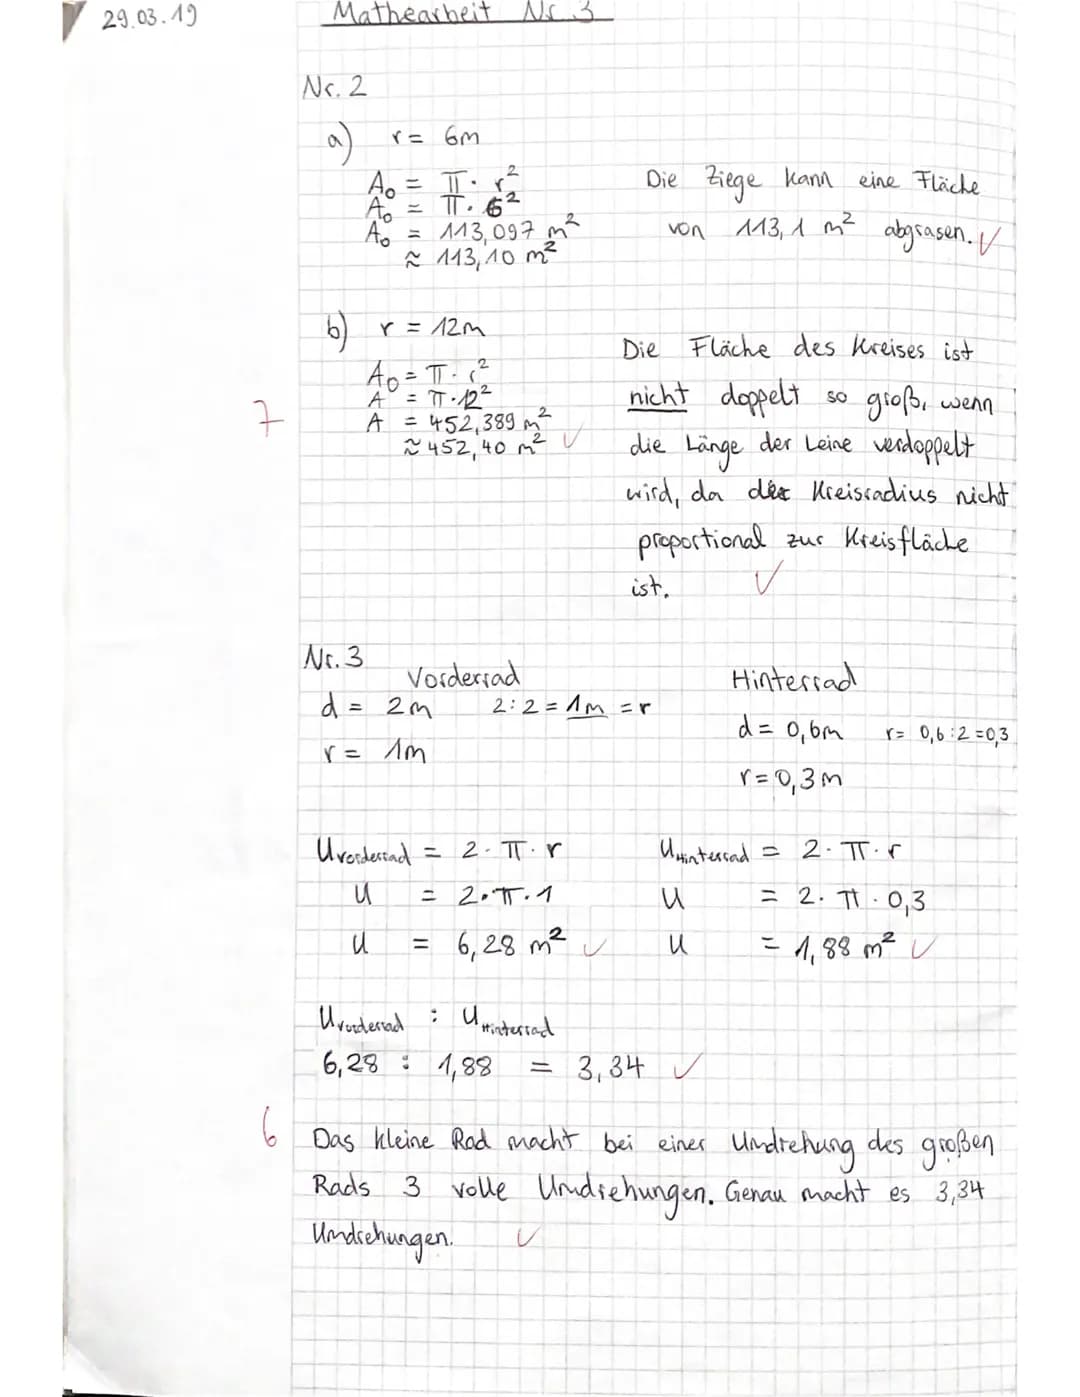 29.03.19
Mathearbeit Nr. 3
Nr. 2
a) r = 6m
A₀ = π · r²
A₀ = π · 6²
A₀ = 113,097 m²
≈ 113,10 m²
Die Ziege kann eine Fläche
von 113,1 m² abgrasen. ✓
b) r = 12m
A₀ = π · r²
A = π · 12²
A = 452,389 m²
≈ 452,40 m² ✓
7
Die Fläche des Kreises ist
nicht doppelt so groß, wenn
die Länge der Leine verdoppelt
wird, da der Kreisradius nicht
proportional zur Kreisfläche
ist. ✓
Nr. 3
Vorderrad
d = 2m 2:2 = 1m = r
r = 1m
Hinterrad
d = 0,6m r = 0,6:2 = 0,3
r = 0,3m
U Vorderrad = 2 · π · r
U = 2 · π · 1
U = 6,28 m² ✓
U Hinterrad = 2 · π · r
U = 2 · π · 0,3
U = 1,88 m² ✓
U Vorderrad : U Hinterrad
6,28 : 1,88 = 3,34 ✓
6
Das kleine Rad macht bei einer Umdrehung des großen
Rads 3 volle Umdrehungen. Genau macht es 3,34
Umdrehungen. ✓